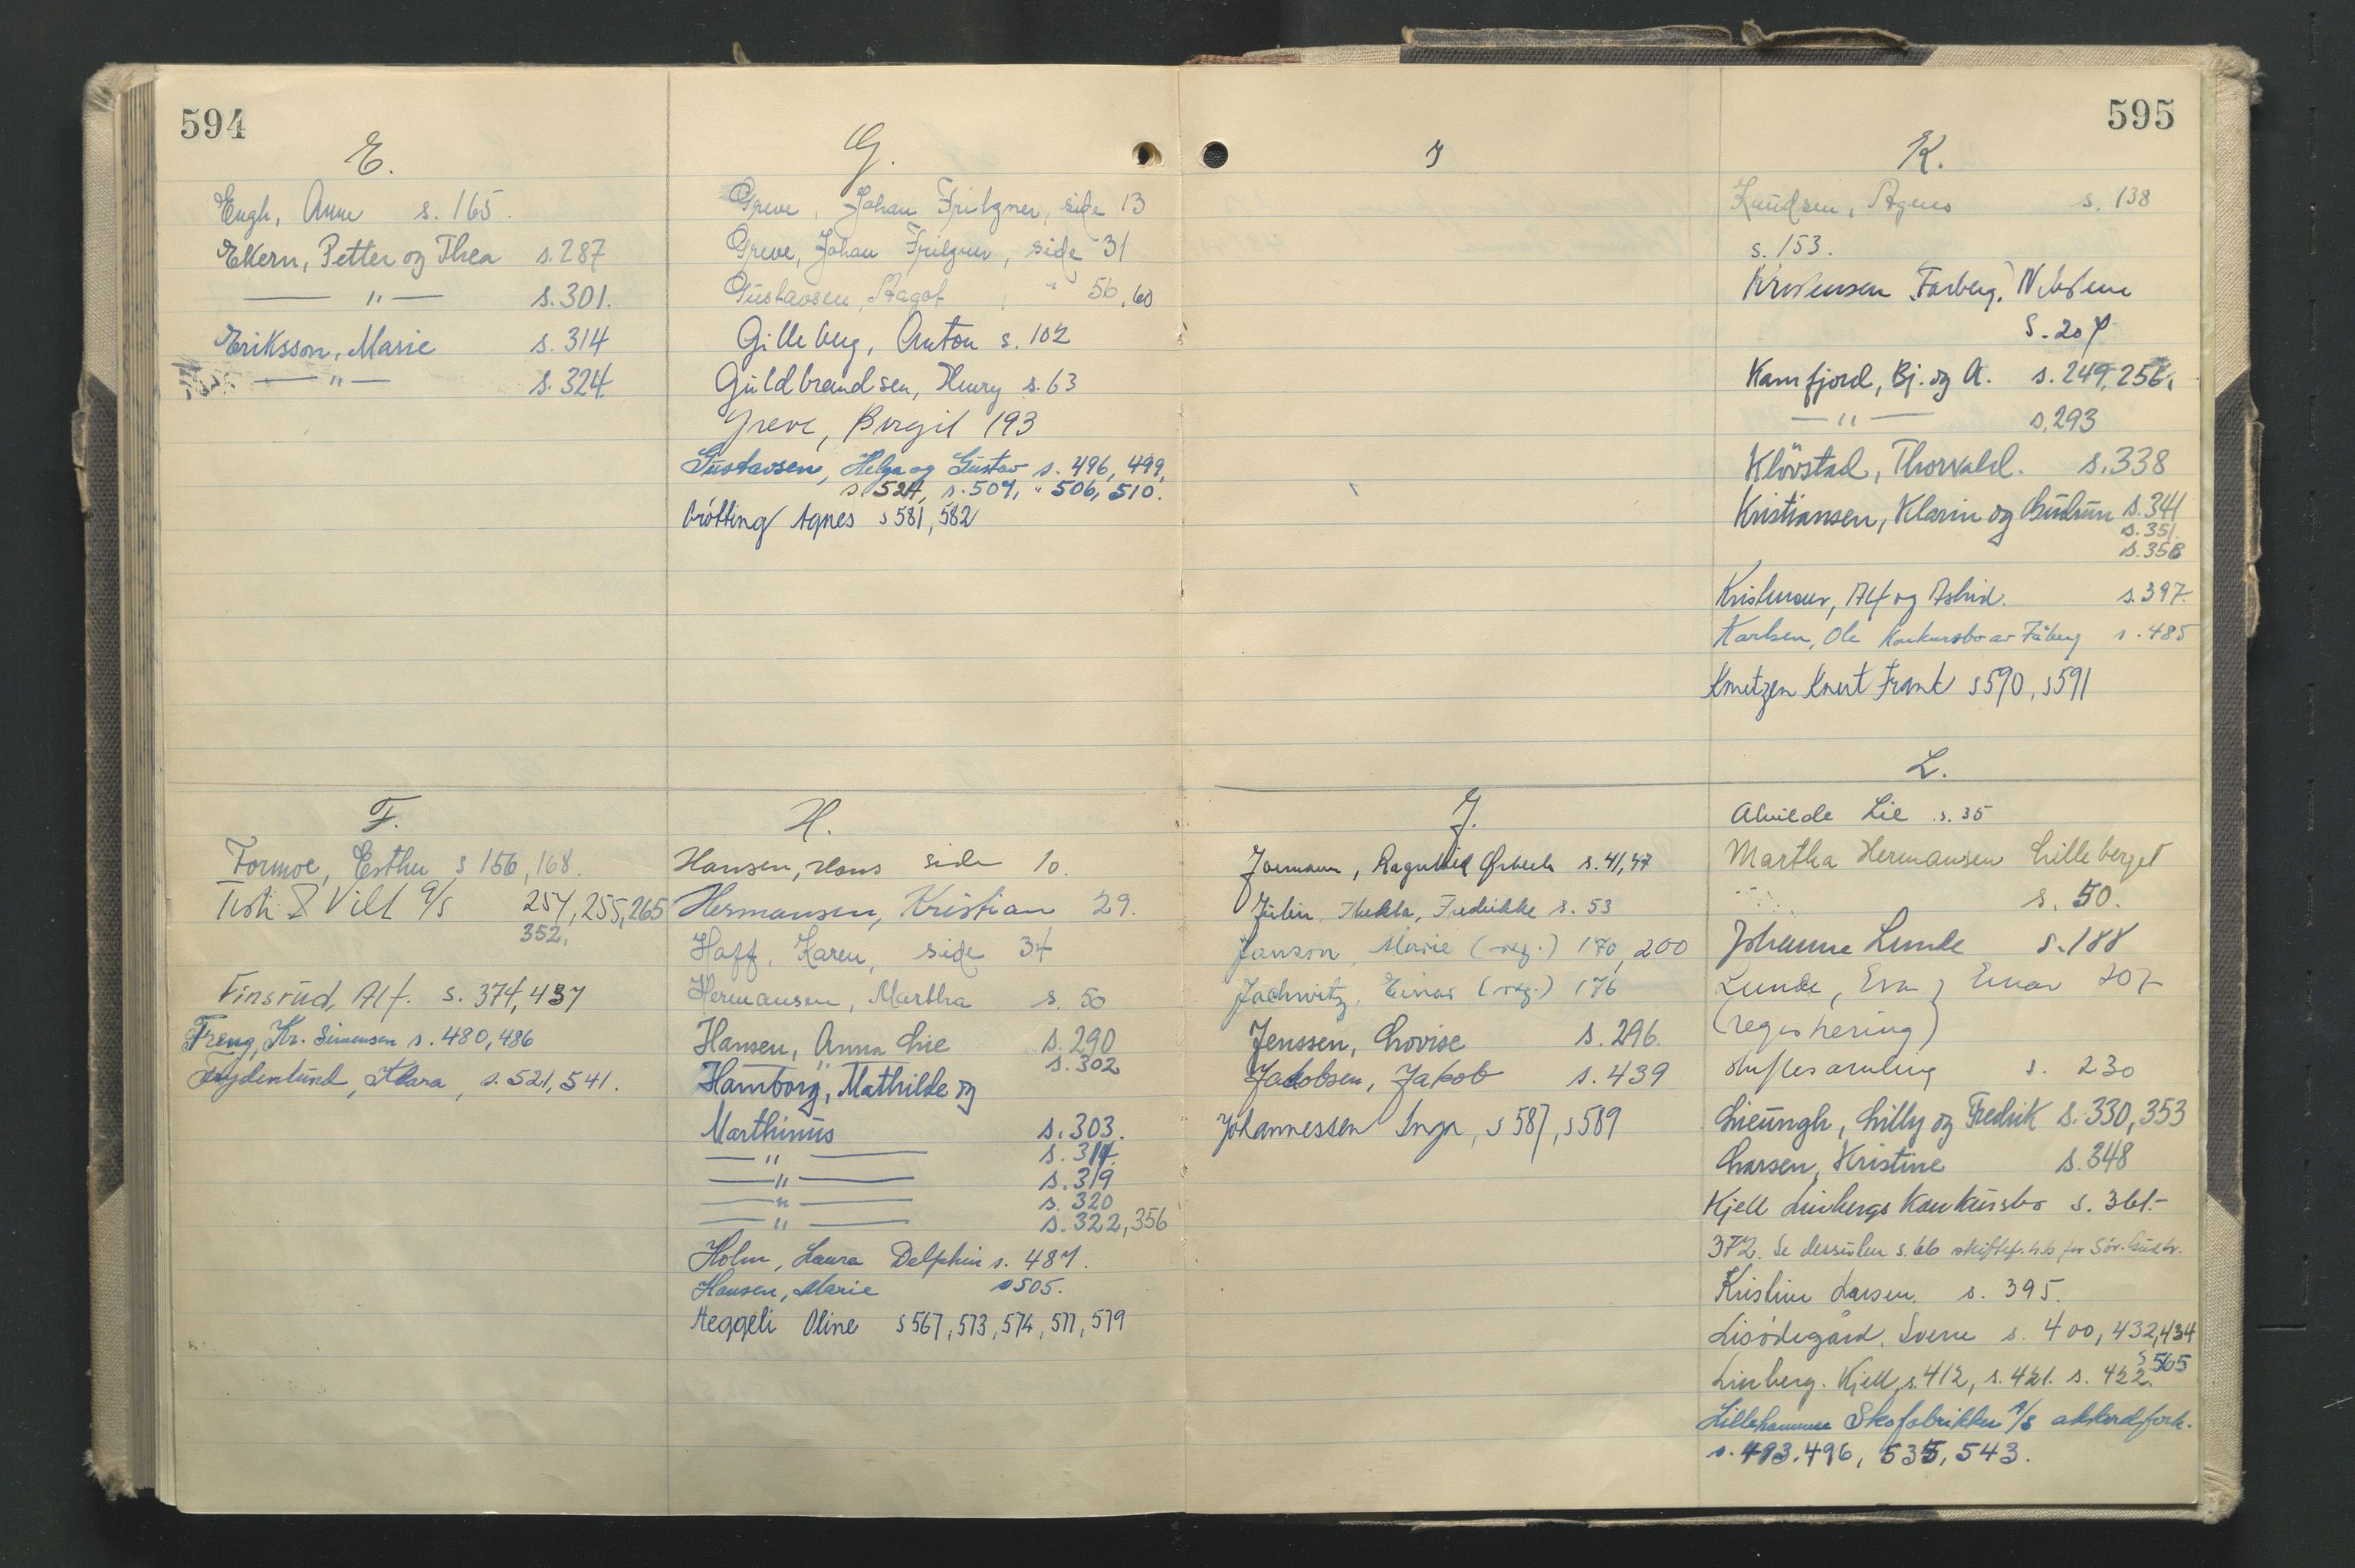 594
E.
Engh, Anne s. 165.
Ekern, Petter og Thea s. 287
— " — s. 301.
Eriksson, Marie s. 314
— " — s. 324.
F.
Formoe, Esther s 156, 168.
Fisk & Vilt A/S 254, 255, 265
352.
Finsrud, Alf. s. 374, 437
Freng, Kr. Simensen s. 480, 486
Frydenlund, Klara, s. 521, 541.
G.
Greve, Johan Fritzner, side 13
Greve, Johan Fritzner, side 31
Gustavsen, Aagot, " 56, 60
Gilleberg, Anton s. 102
Guldbrandsen, Henry s. 63
Greve, Birgit 193
Gustavsen, Helga og Gustav s. 496, 499,
s 524, s. 504, " 506, 510.
Grötting Agnes s 581, 582
H.
Hansen, Hans side 10.
Hermansen, Kristian 29.
Haff, Karen, side 34
Hermansen, Martha s. 50
Hansen, Anna Lie s. 290
— " — s. 302
Hamborg, Mathilde og
Marthinus s. 303.
— " — s. 314.
— " — s. 319
— " — s. 320
— " — s. 322, 356
Holm, Laura Delphin s. 487.
Hansen, Marie s 505.
Heggeli Oline s 567, 573, 574, 577, 579
595
I
J.
Ragnhild s. 41, 47
Thekla, Fredrikke s. 53
Janson, Marie (reg.) 170, 200
Jachwitz, Einar (reg.) 176
Jenssen, Lovise s. 296.
Jakobsen, Jakob s. 439
Johannessen Inga, s 587, s 589
K.
Knudsen, Agnes s. 138
s. 153.
Kristensen Faaberg,
s. 204
Kamfjord, Bj. og A. s. 249, 256,
— " — s. 293
Klövstad, Thorvald. s. 338
Kristiansen, Klarin og Gudrun s. 341
s. 351.
s. 358
Alf og Astrid. s. 397.
Karlsen, Ole konkursbo av Fåberg s. 485
Knutzen Knut Frank s 590, s 591
L.
Alvilde Lie s. 35
Martha Hermansen Lilleberget
s. 50.
Johanne Lunde s. 188
Lunde, Eva og Einar 207
(registrering)
skiftesamling s. 230
Lieungh, Lilly og Fredrik s. 330, 353
Larsen, Kristine s. 348
Kjell Linbergs konkursbo s. 361.-
372. Se dessuten s. 66 skiftef. h.b for Sör-Gudbr.
Kristine Larsen. s. 395.
Lisödegård, Sverre s. 400, 432, 434
s 565
Linberg. Kjell, s. 412, s. 421. s. 422.
Lillehammer Skofabrikker A/S akkordforh.
s. 493. 496, 535, 543.